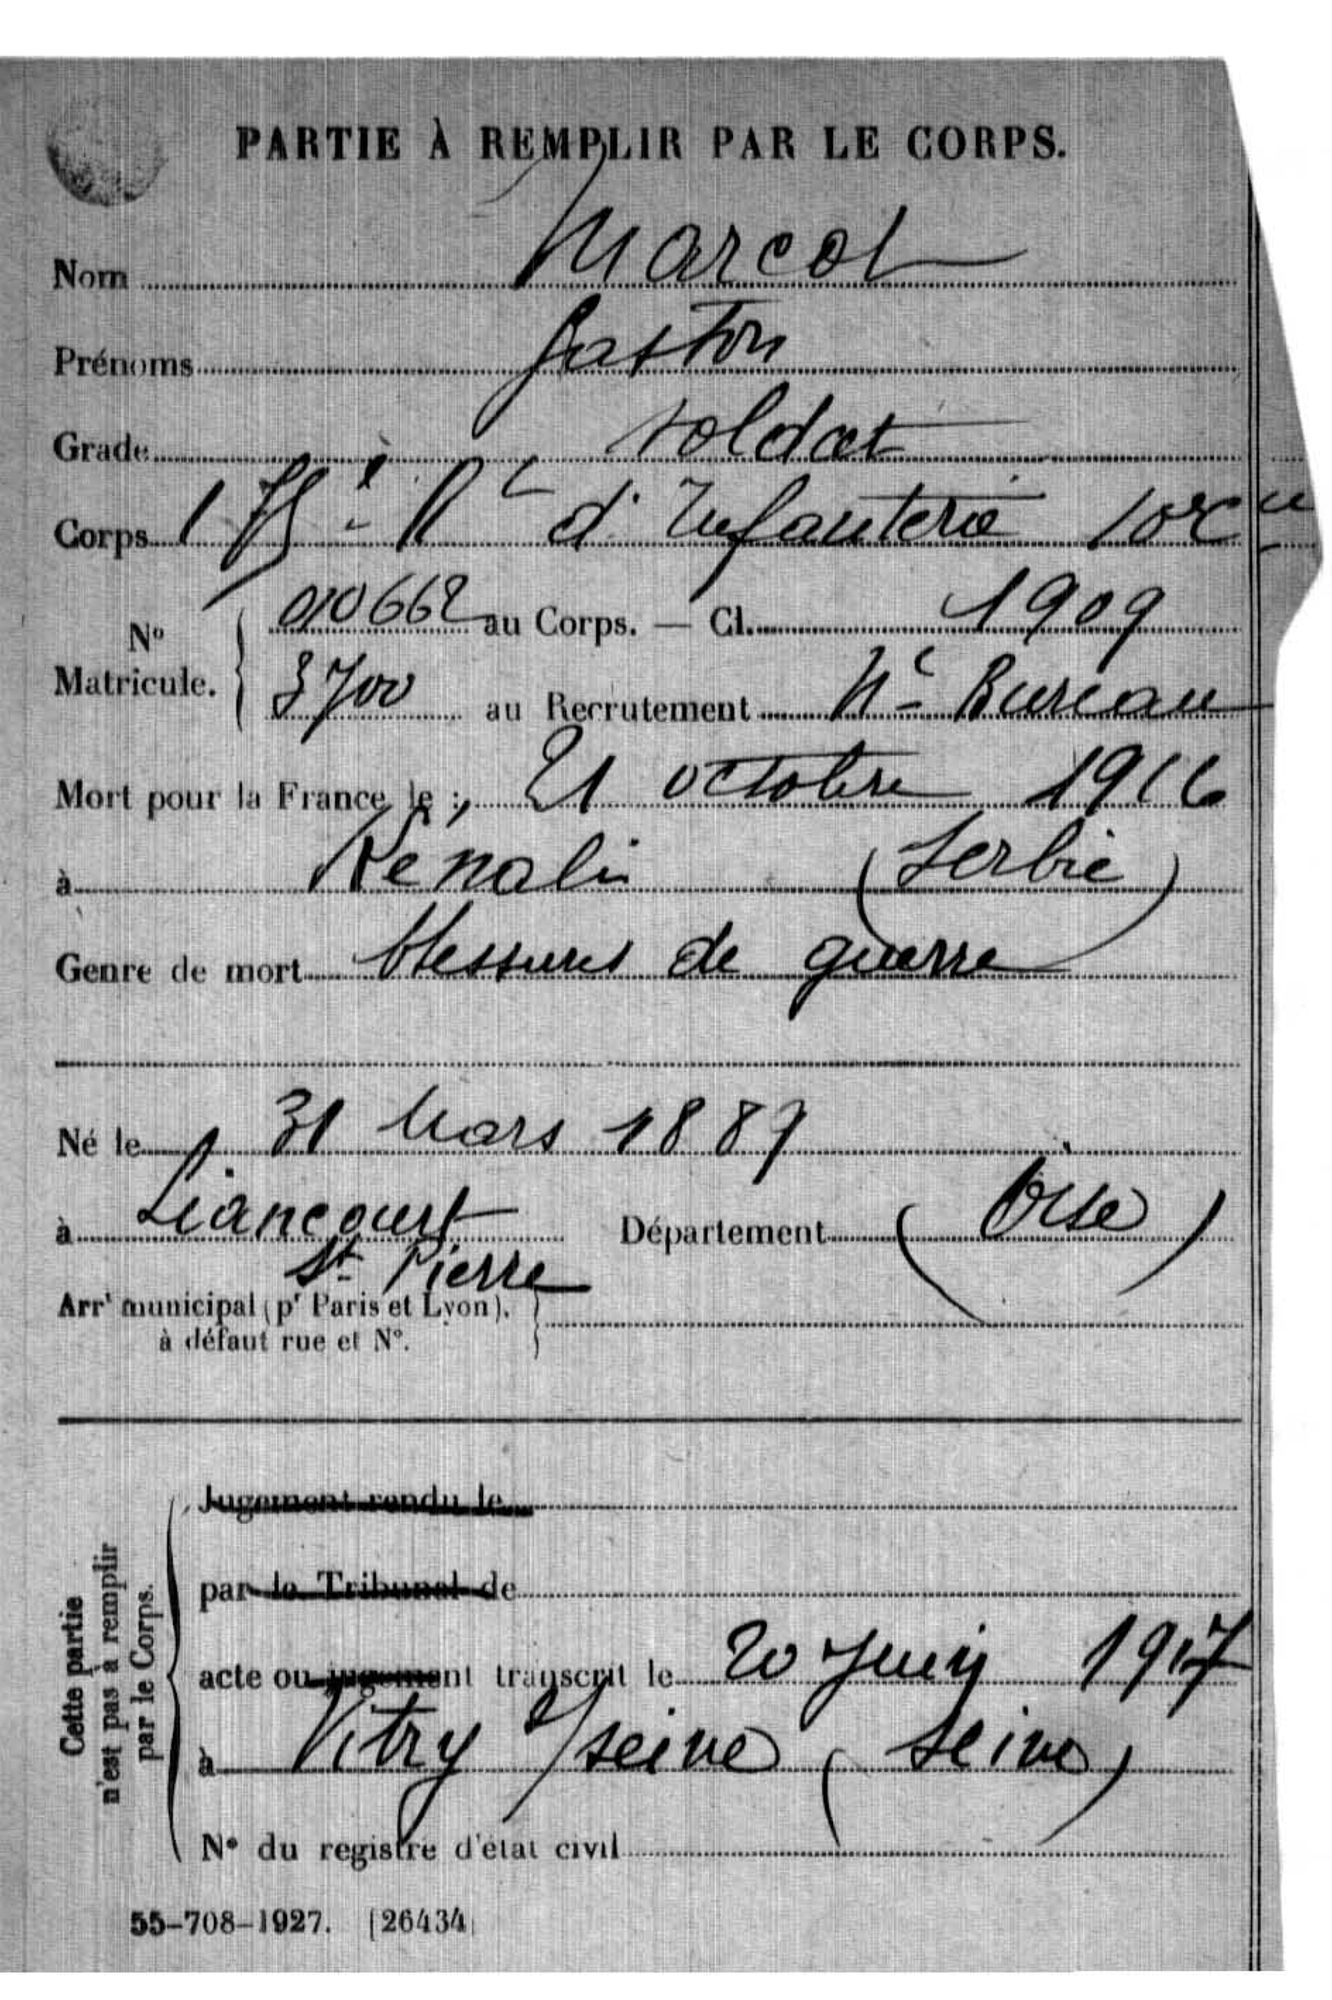 PARTIE À REMPLIR PAR LE CORPS.
Nom Marcot
Prénoms Gaston
Grade soldat
Corps 175e Rt d'Infanterie 10e Cie
No Matricule. 010662 au Corps. — Cl. 1909
3700 au Recrutement Bureau
Mort pour la France le : 21 octobre 1916
à Kenali (Serbie)
Genre de mort blessures de guerre
Né le 31 Mars 1889
à Liancourt St Pierre Département (Oise)
Arrt municipal (pr Paris et Lyon).
à défaut rue et No.
Cette partie
n'est pas à remplir
par le Corps.
Jugement rendu le
par le Tribunal de
acte ou jugement transcrit le 20 Juin 1917
à Vitry s/seine (Seine)
No du registre d'état civil
55-708-1927. [26434